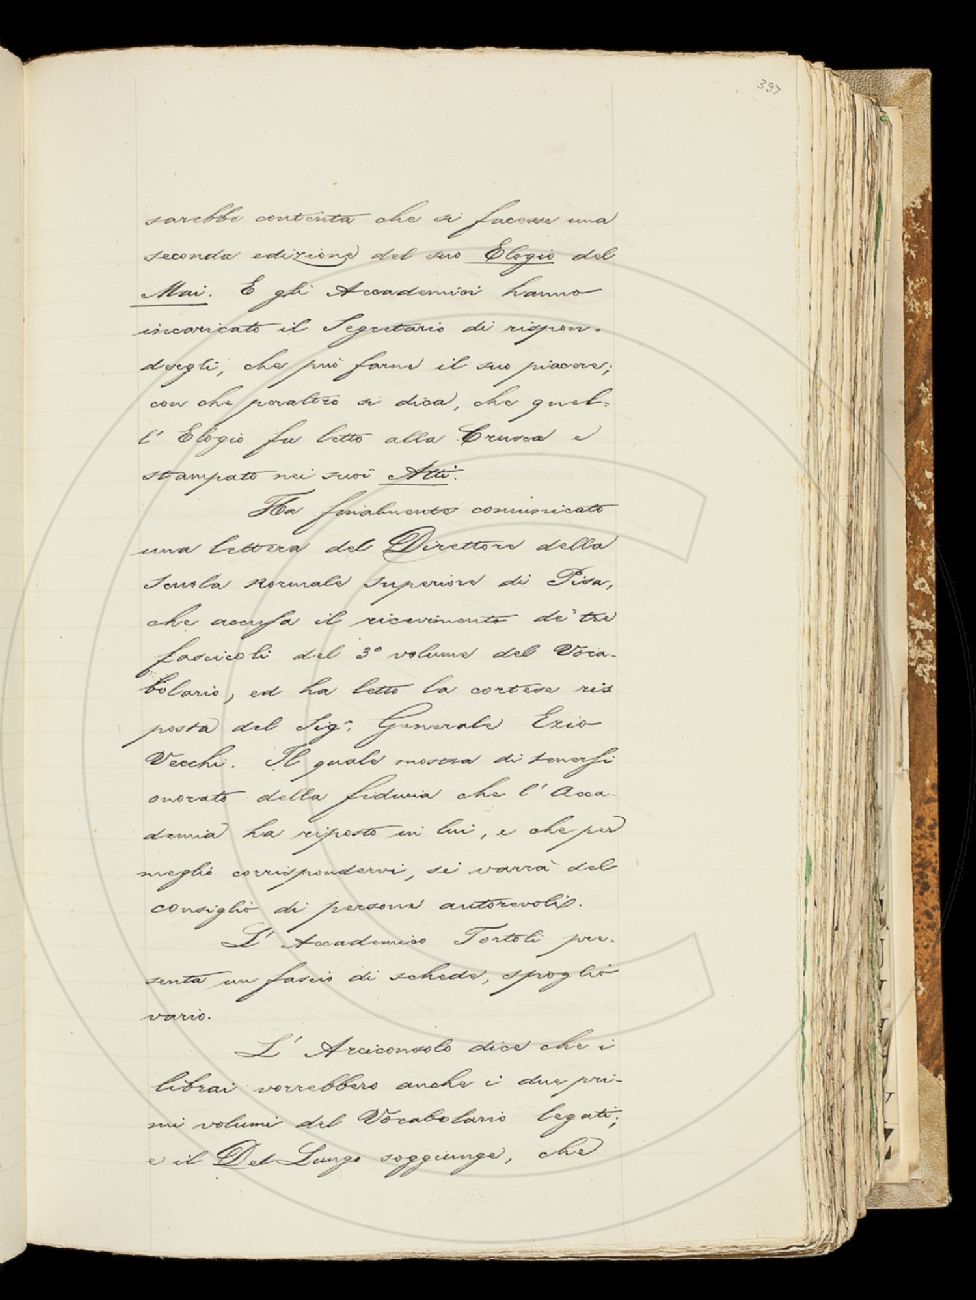 397
sarebbe contenta che si facesse una
seconda edizione del suo Elogio del
Mai. E gli Accademici hanno
incaricato il Segretario di rispon-
dergli, che può farne il suo piacere;
con che peraltro si dica, che quel-
l' Elogio fu letto alla Crusca e
stampato nei suoi Atti.
Ha finalmente comunicato
una lettera del Direttore della
Scuola Normale Superiore di Pisa,
che accusa il ricevimento de' tre
fascicoli del 3º volume del Voca-
bolario, ed ha letto la cortese ris
posta del Sig.r Generale Ezio
Vecchi. Il quale mostra di tenersi
onorato della fiducia che l' Acca-
demia ha riposto in lui, e che per
meglio corrispondervi, si varrà del
consiglio di persone autorevoli.
L' Accademico Tortoli pre-
senta un fascio di schede, spoglio
vario.
L' Arciconsolo dice che i
librai vorrebbero anche i due pri-
mi volumi del Vocabolario legati;
e il Del Lungo soggiunge, che